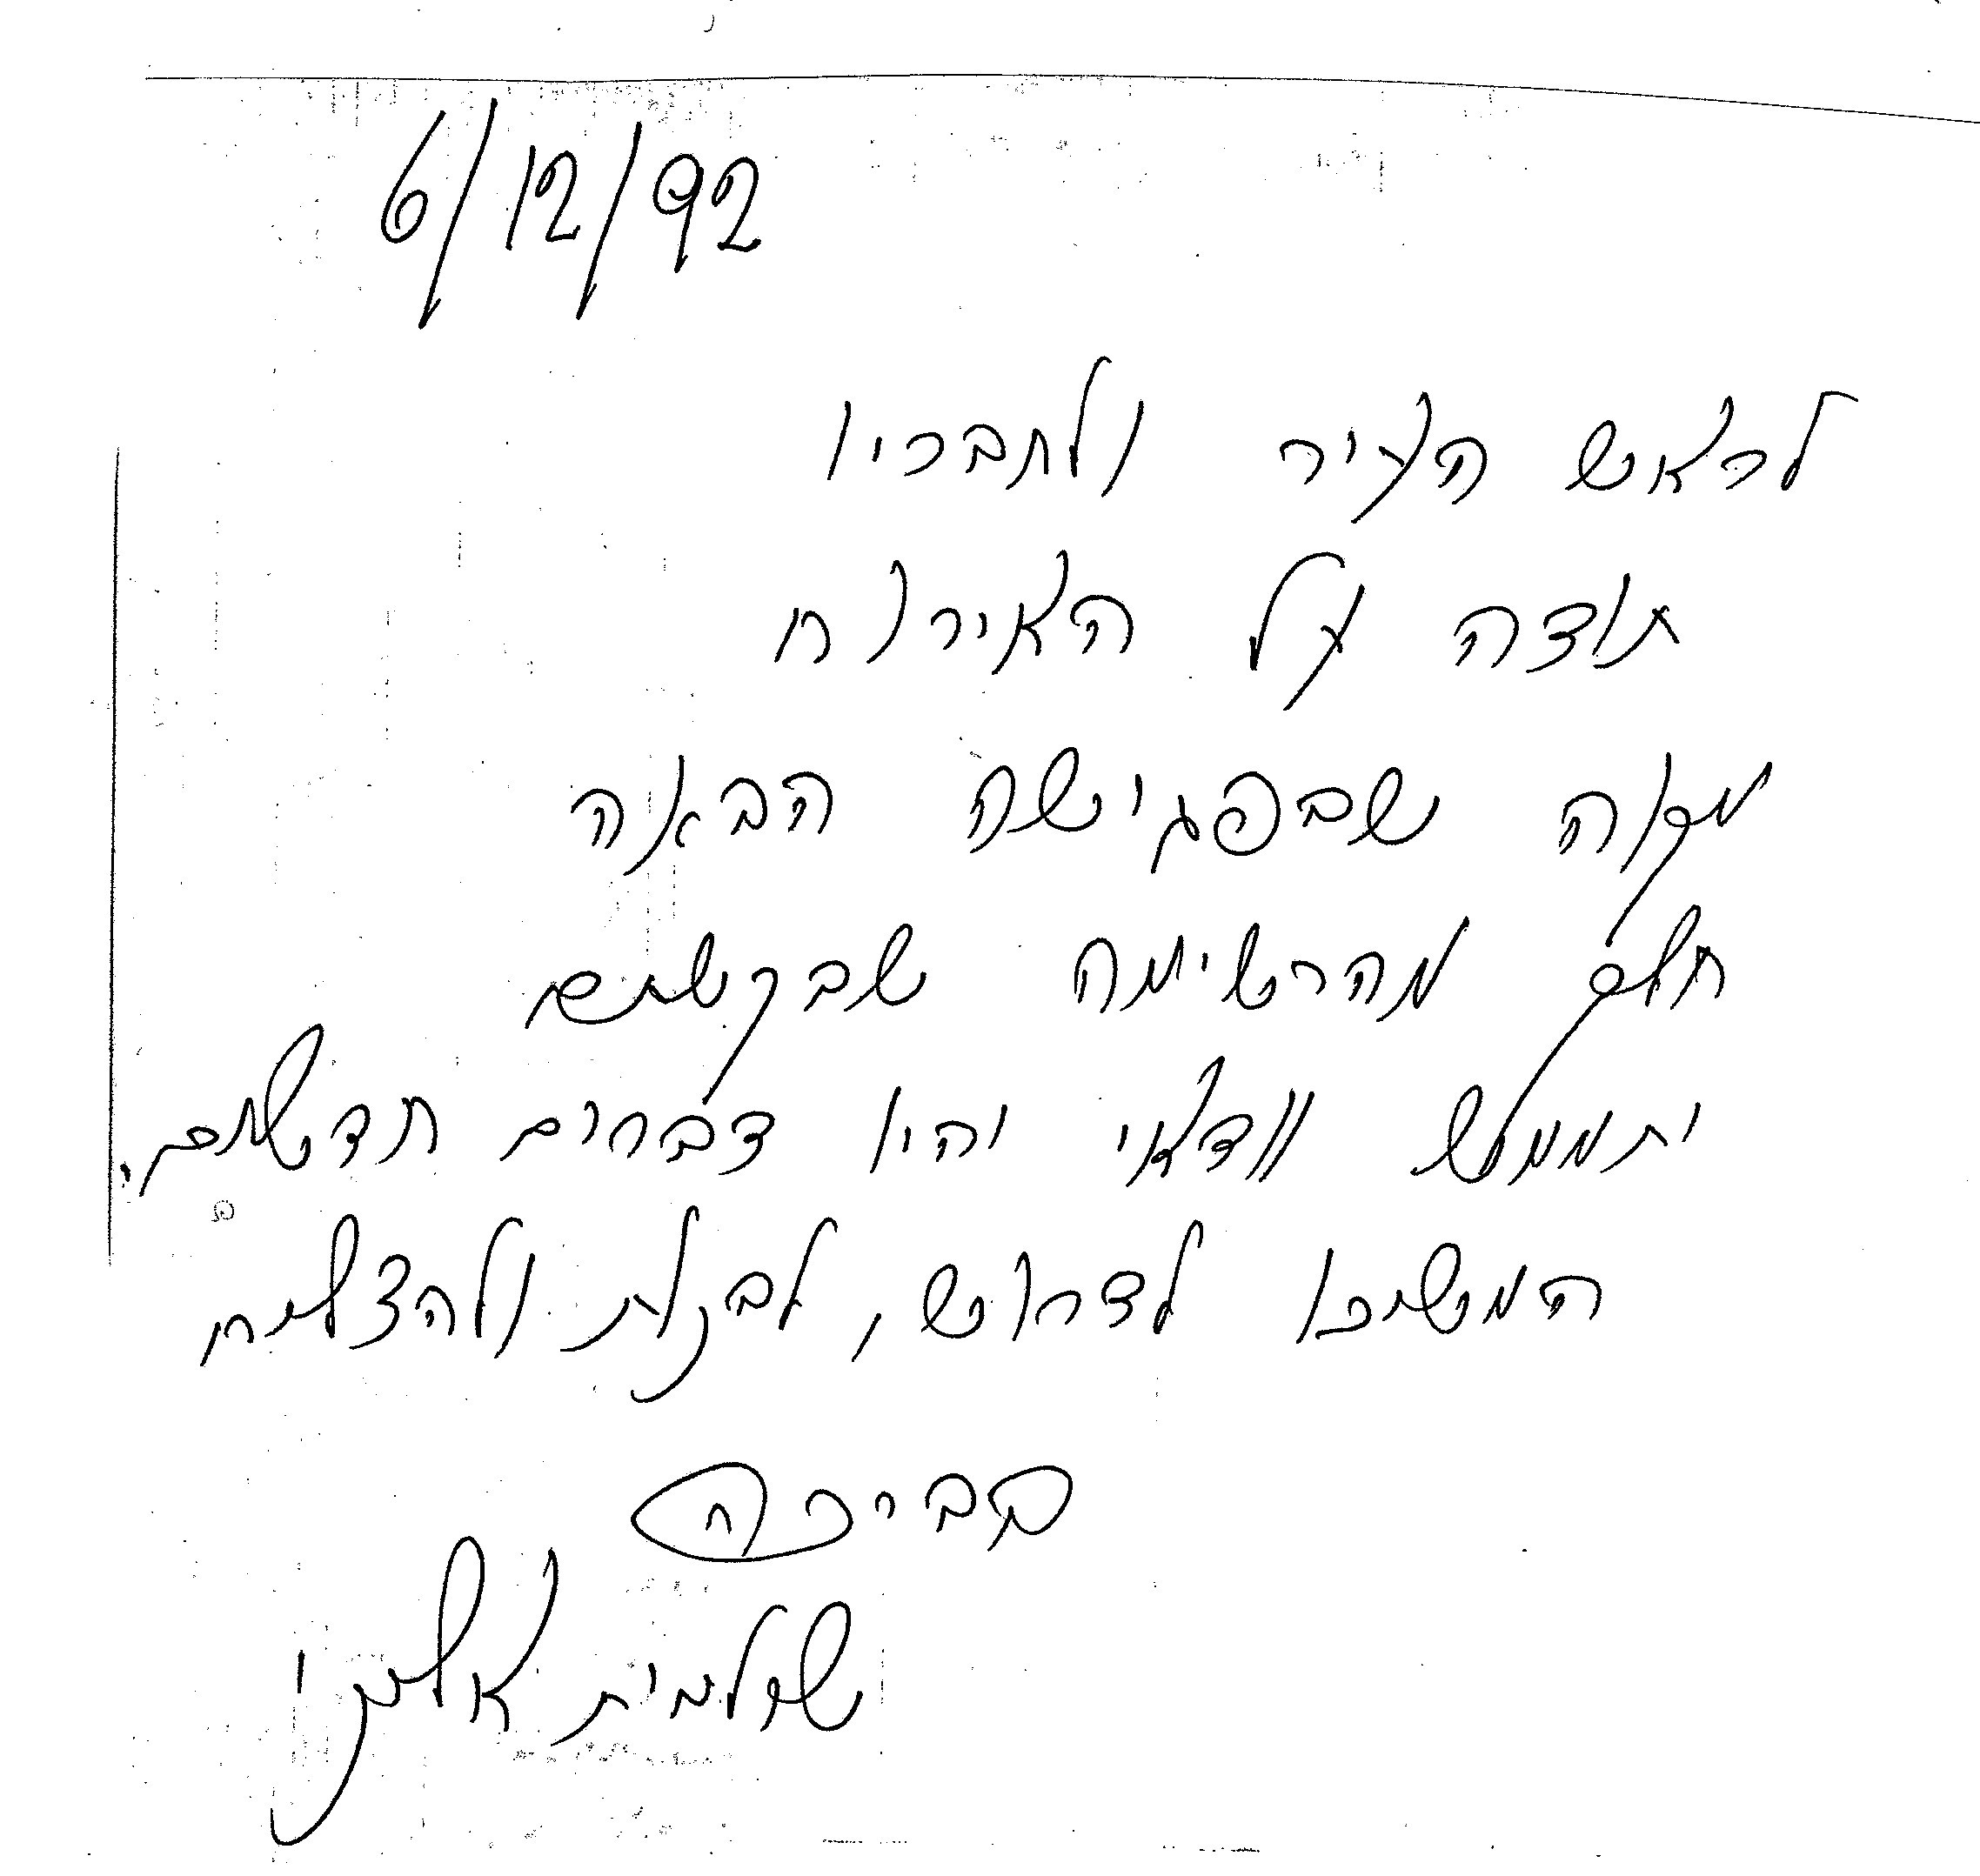 6/12/92
לראש העיר ולחבריו
תודה על האירוח
מקוה שבפגישה הבאה
חלק מהרשימה שבקשתם
יתממש וודאי והיו דברים חדשים,
המשיכו לדרוש, לבקש ולהצליח
בברכה
שולמית אלוני